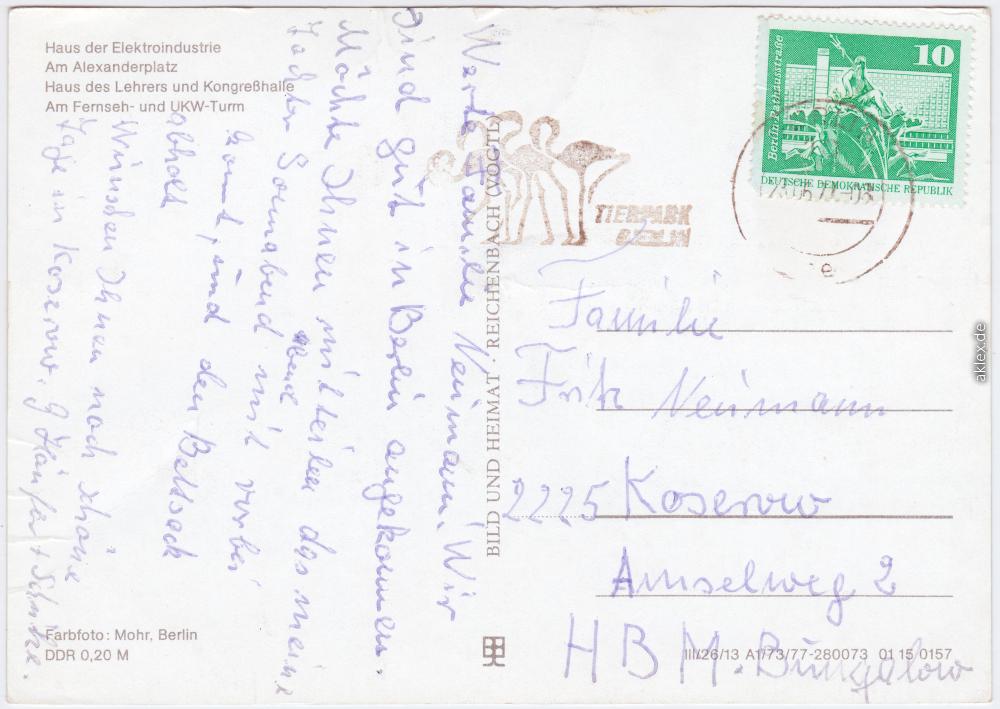 Haus der Elektroindustrie
Am Alexanderplatz
Haus des Lehrers und Kongreßhalle
Am Fernseh- und UKW-Turm
Werte Familie Neumann. Wir
sind gut in Berlin angekommen.
Möchte Ihnen mitteilen das meine
Tochter Sonnabend abend mit vorbei
kommt, und den Bettsack
abhold
Wünschen Ihnen noch schöne
Tage in Koserow.
Farbfoto: Mohr, Berlin
DDR 0,20 M
BILD UND HEIMAT · REICHENBACH (VOGTL)
TIERPARK
BERLIN
10
Berlin-Rathausstraße
DEUTSCHE DEMOKRATISCHE REPUBLIK
Familie
Fritz Neumann
2225 Koserow
Amselweg 2
HBM. Bungalow
III/26/13 A1/73/77-280073 01 15 0157
aklex.de